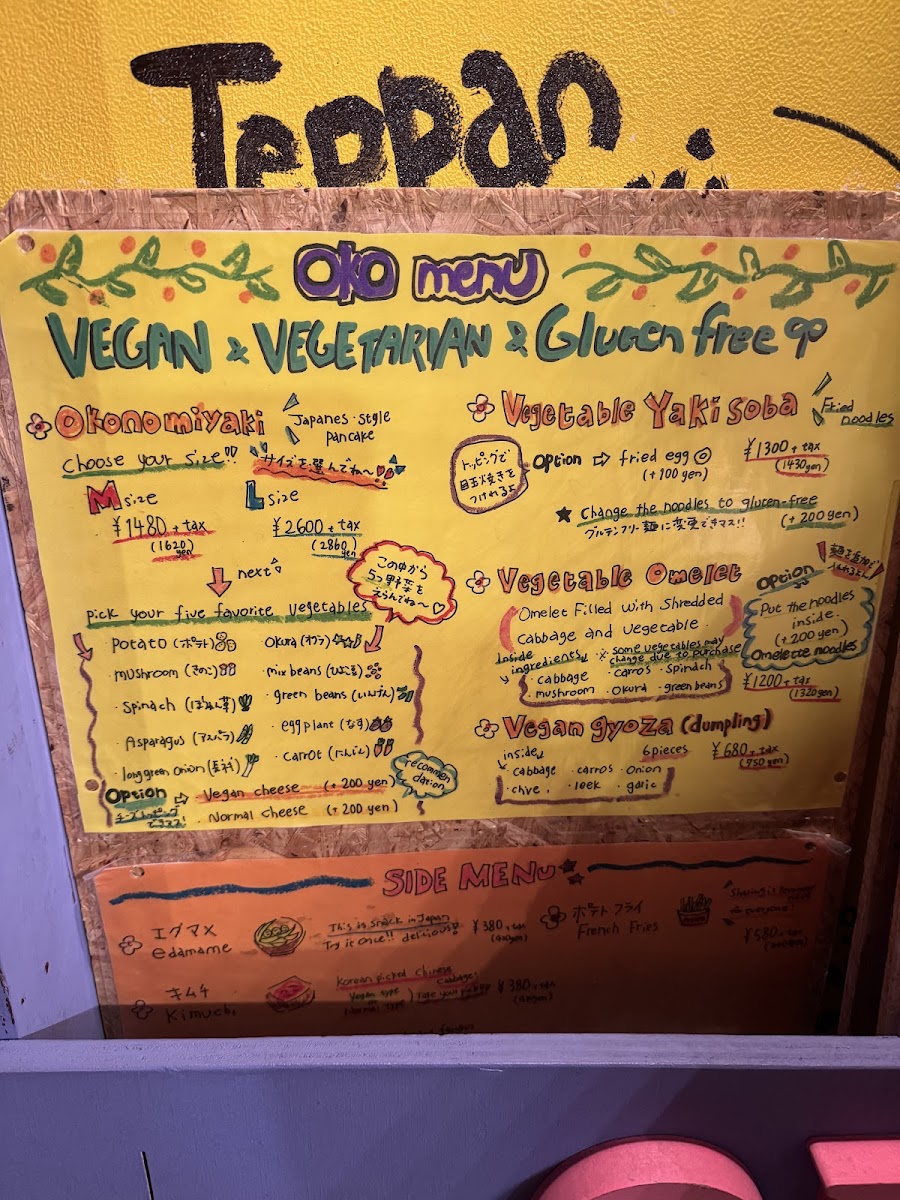 Teppan
oko menu
VEGAN & VEGETARIAN & Gluten free
Okonomiyaki
Japanes・style
pancake
choose your size!!
サイズを選んでね〜
M size
¥1480 + tax
(1620)
yen
L size
¥2600 + tax
(2860)
yen
next
この中から
5つ野菜を
えらんでね〜♡
Pick your five favorite vegetables
potato (ポテト)
・mushroom (きのこ)
・spinach (ほうれん草)
・Asparagus (アスパラ)
・long green onion (長ネギ)
okura (オクラ)
・mix beans (ひよこ豆)
・green beans (いんげん)
・egg plant (なす)
・carrot (にんじん)
option ⇨ Vegan cheese (+200 yen)
recommen
dation
チーズトッピング
できマス!
Normal cheese (+200 yen)
Vegetable Yaki soba
Fried
noodles
トッピングで
目玉焼きを
つけれるよ
option ⇨ fried egg
(+100 yen)
¥1300 + tax
(1430yen)
★ Change the noodles to gluten-free
グルテンフリー麺に変更できマス!!
(+200 yen)
Vegetable Omelet
Omelet Filled with shredded
cabbage and vegetable.
inside
ingredients
※ some vegetables may
change due to purchase
・cabbage ・carros ・spinach
・mushroom ・okura ・green beans
option
Put the noodles
inside.
(+200 yen)
Omelette noodles
¥1200 + tax
(1320yen)
Vegan gyoza (dumpling)
inside
6pieces
¥680 + tax
(750 yen)
・cabbage ・carros ・onion
・chive, ・leek ・garlic
SIDE MENU
エダマメ
edamame
This is snack in Japan
Try it once!! delicious!
¥380 + tax
ポテト フライ
French Fries
¥580 + tax
キムチ
kimuchi
Korean picked chinese
cabbage
Vegan type
Normal type
¥380 + tax